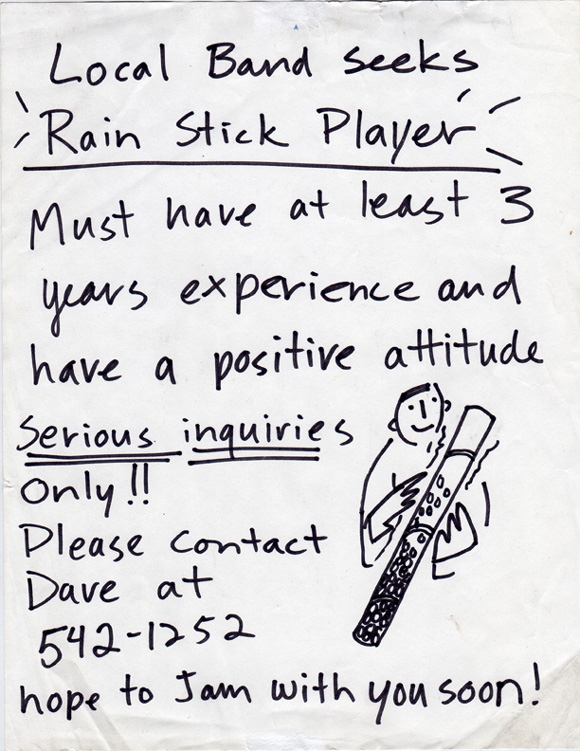 Local Band seeks
Rain Stick Player
Must have at least 3
years experience and
have a positive attitude
Serious inquiries
Only!!
Please contact
Dave at
542-1252
hope to Jam with you soon!